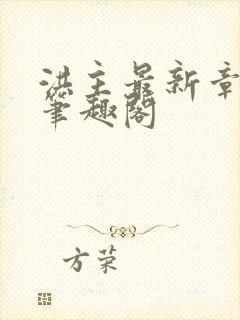 洪主最新章
笔趣阁
方荣